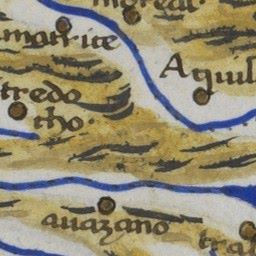 mōreal·
matrice
Aquil
tredo
cho·
auazano
tra